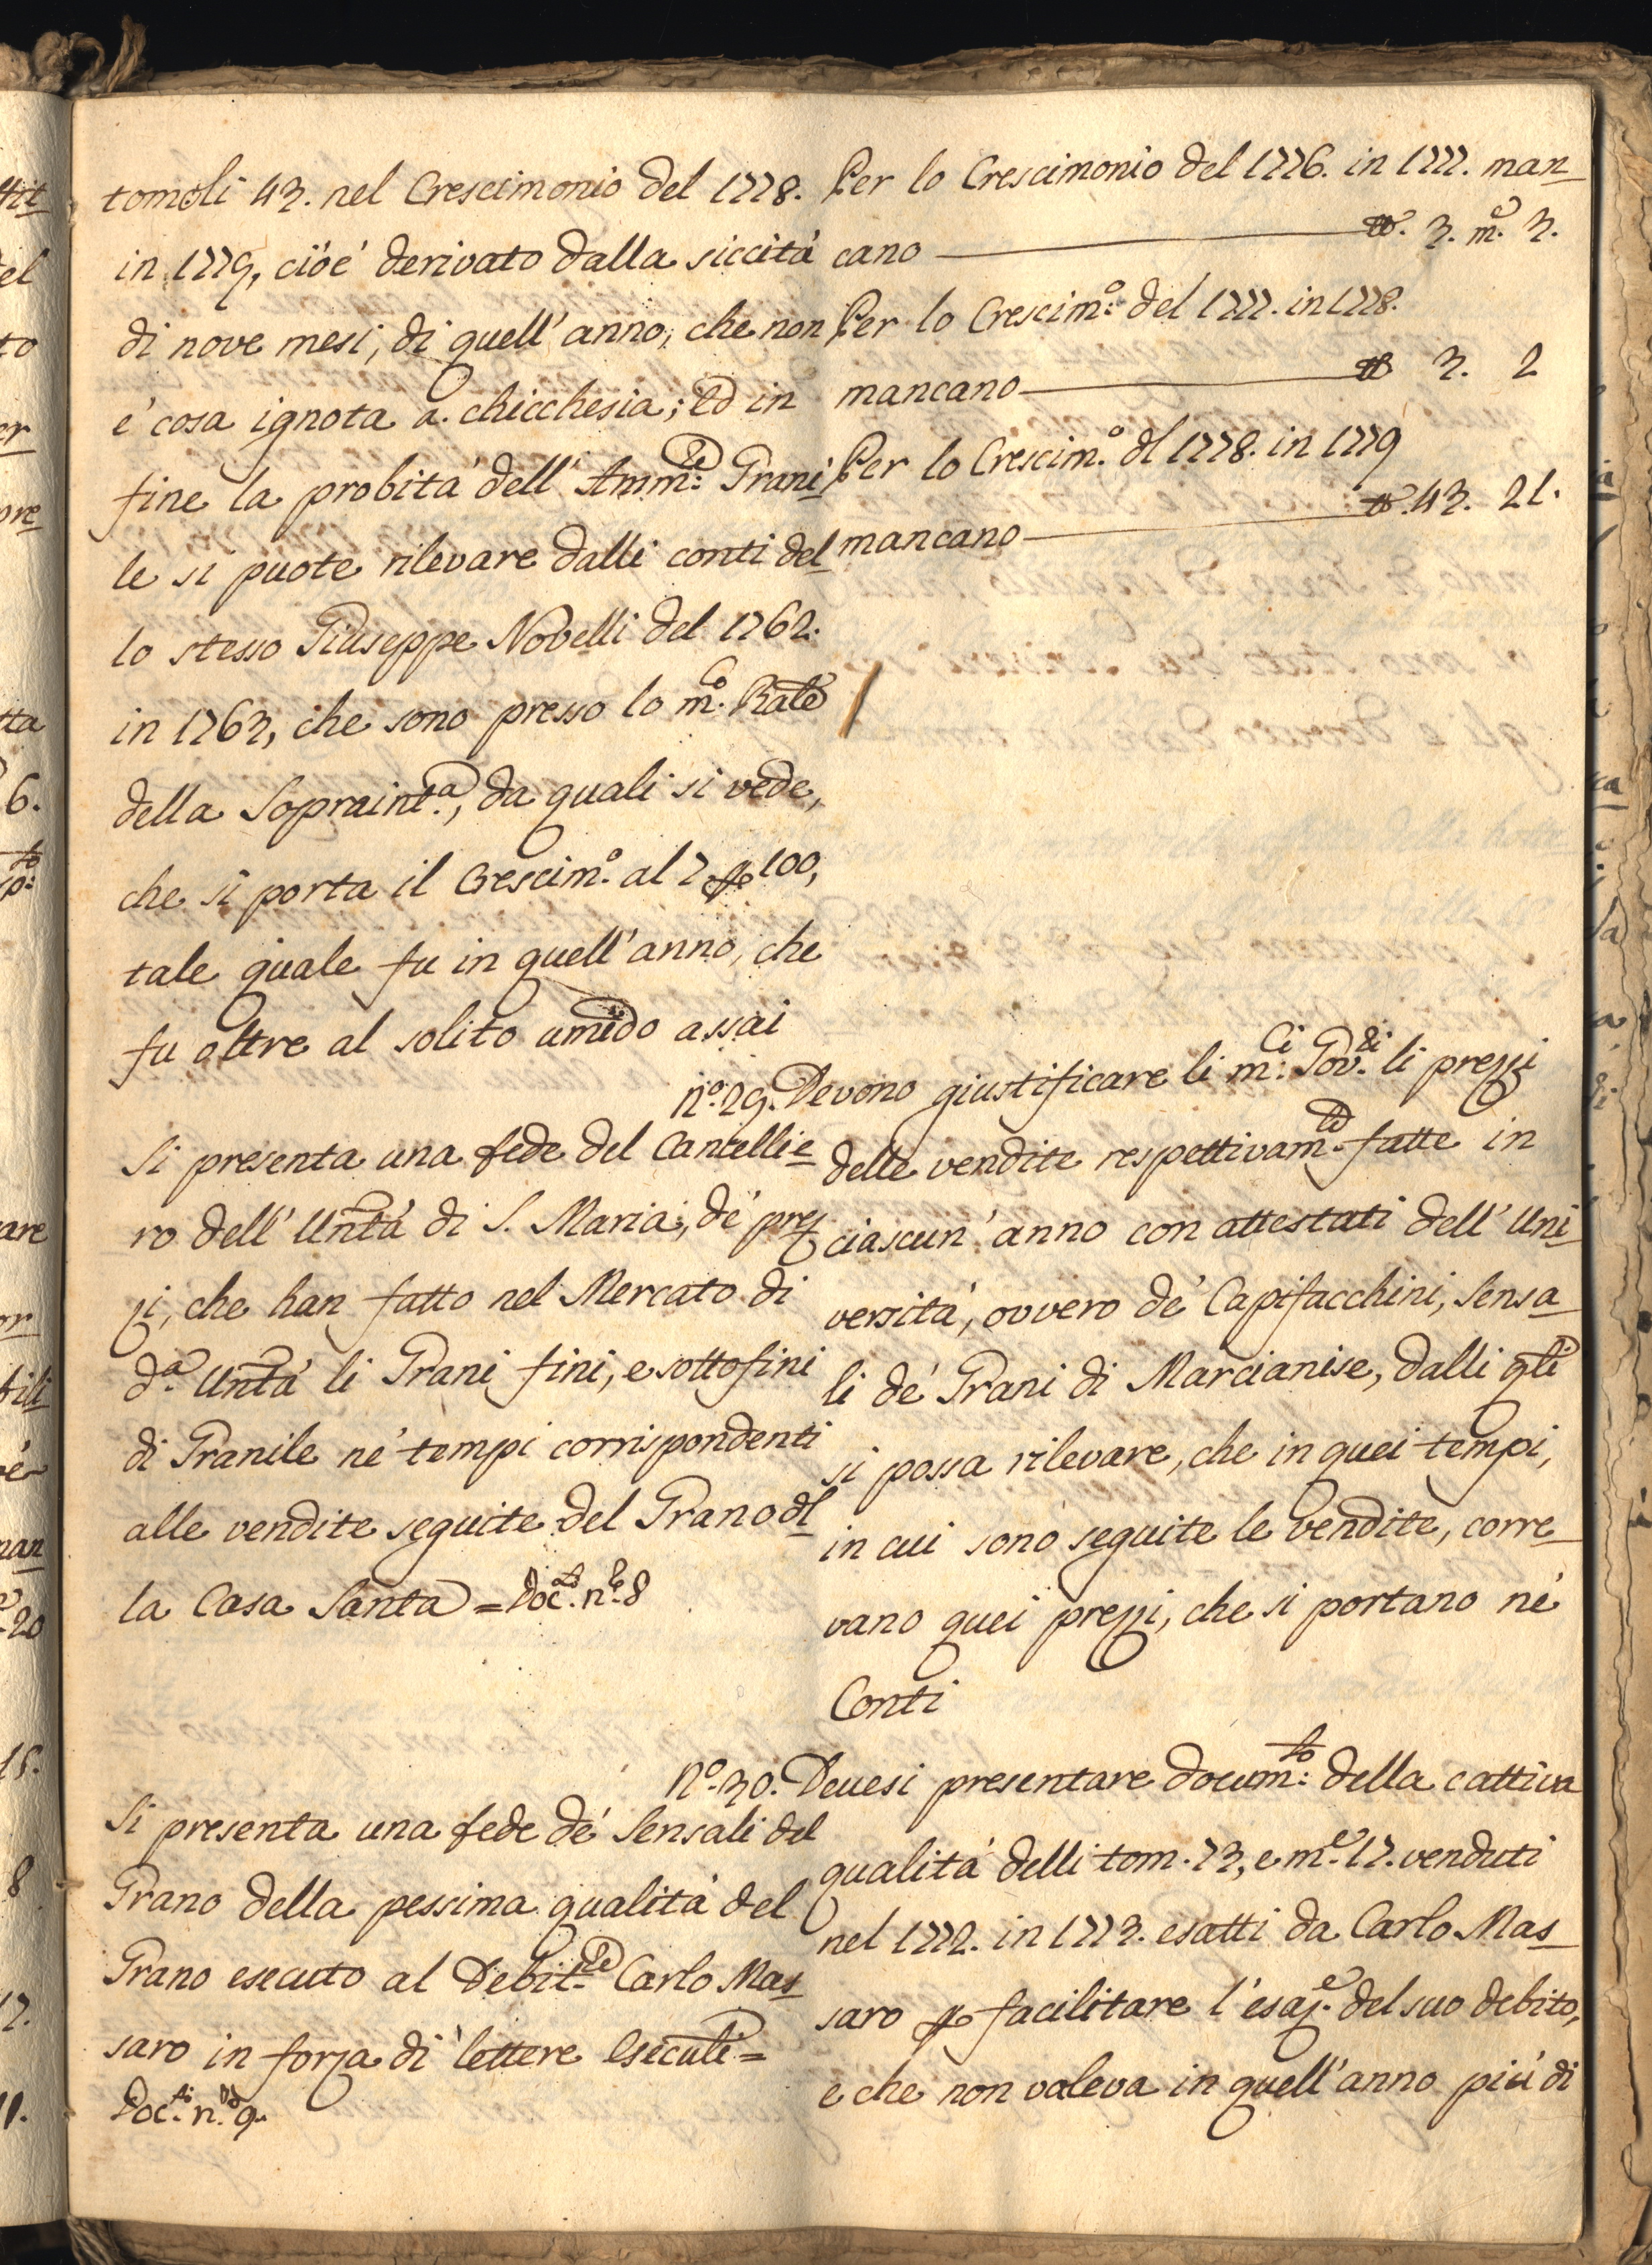 tomoli 43. nel Crescimonio del 1778.
in 1779, ciò è derivato dalla siccità
di nove mesi, di quell'anno, che non
è cosa ignota a chicchesia; ed in
fine la probità dell'Amm:re Grani
le si puote rilevare dalli conti del
lo stesso Giuseppe Novelli del 1762.
in 1763, che sono presso lo m.co Rale
della Sopraint.a, da quali si vede,
che si porta il Crescim.o al 7 p 100,
tale quale fu in quell'anno, che
fu oltre al solito umido assai
Per lo Crescimonio del 1776. in 1777. man
cano tt. 3. m.e 3.
Per lo Crescim:o del 1777. in 1778.
mancano tt 3. 2
Per lo Crescim.o dl 1778. in 1779
mancano tt. 43. 21.
Si presenta una fede del Cancellie
ro dell'Unta di S. Maria, de' prez
zi, che han fatto nel Mercato di
d.a Unta li Grani fini, e sottofini
di Granile ne' tempi corrispondenti
alle vendite seguite del Grano dl
la Casa Santa = Doc.to n.o 8
N.o 29. Devono giustificare li m:ci Gov.ri li prezzi
delle vendite respettivam.te fatte in
ciascun'anno con attestati dell'Uni
versità, ovvero de' Capifacchini, Sensa
li de' Grani di Marcianise, dalli qli
si possa rilevare, che in quei tempi,
in cui sono seguite le vendite, corre
vano quei prezzi, che si portano ne'
Conti
Si presenta una fede de' Sensali del
Grano della pessima qualità del
Grano esecuto al Debit.re Carlo Mas
saro in forza di lettere Esecuti =
Doc.ti n.o 9.
N.o 30. Devesi presentare docum:to della cattiva
qualità delli tom. 73, e m.e 17. venduti
nel 1772. in 1773. esatti da Carlo Mas
saro p facilitare l'esaz.e del suo debito,
e che non valeva in quell'anno più di